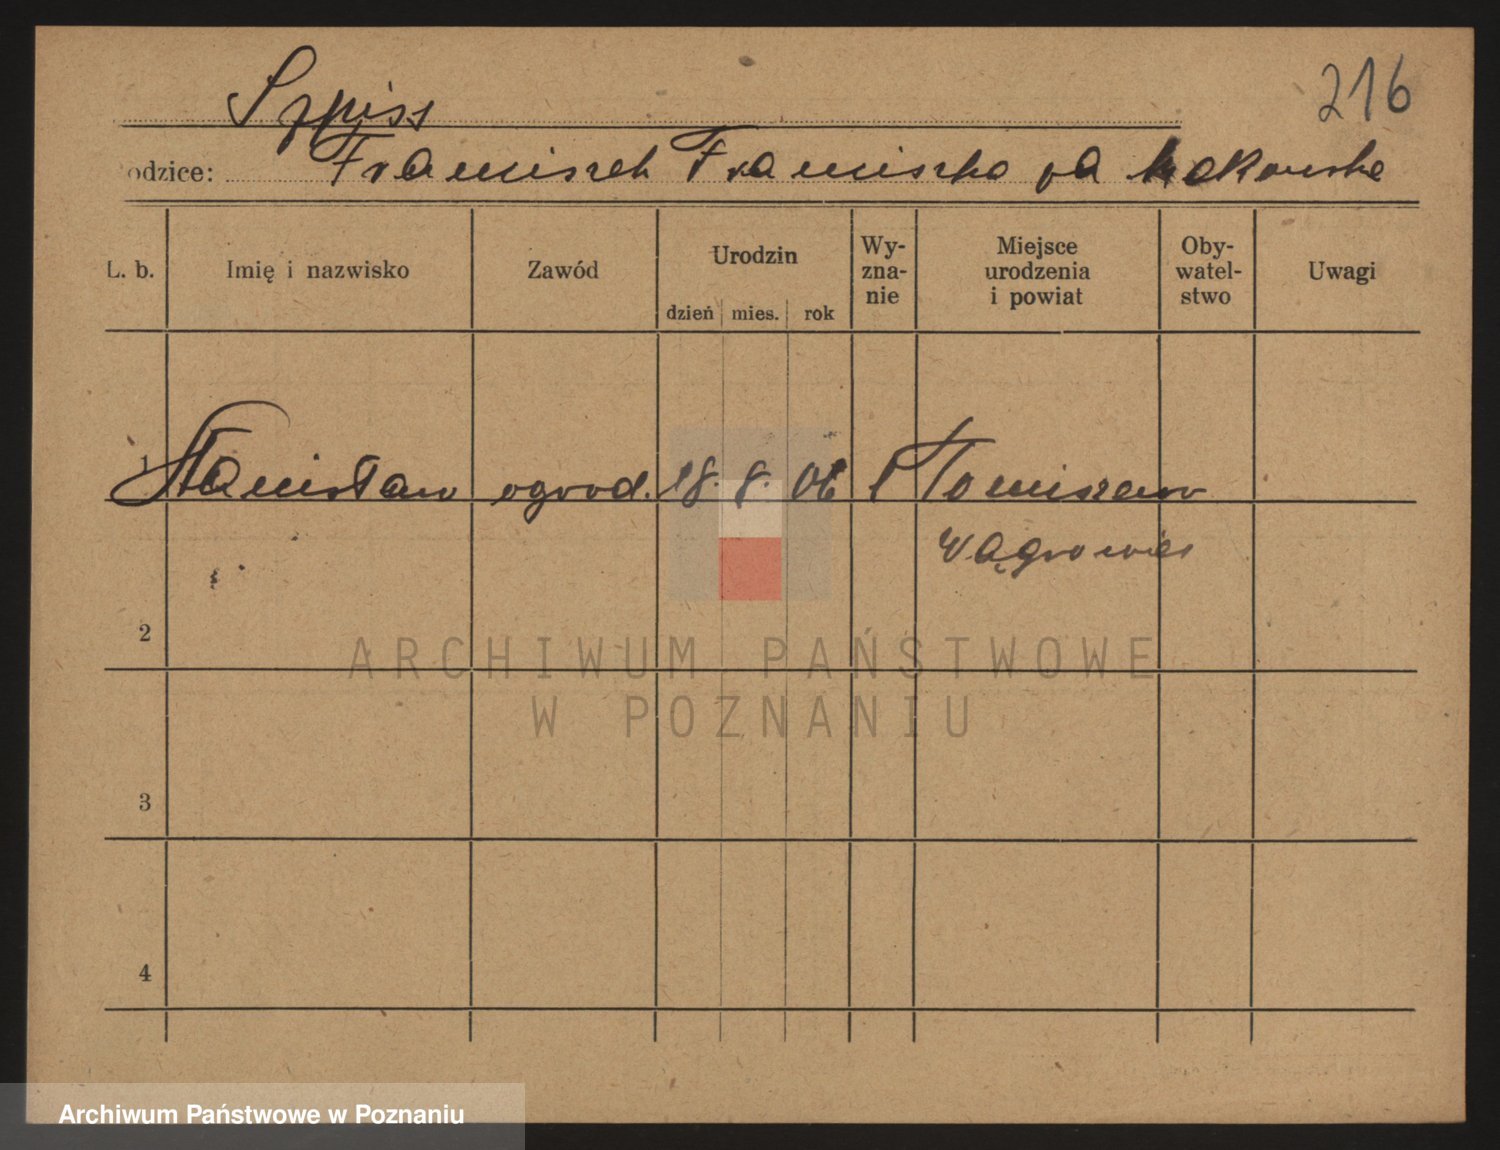 216
Szpiss
odzice: Franciszek Franciszka
L. b. Imię i nazwisko Zawód Urodzin dzień mies. rok Wy-zna-nie Miejsce urodzenia i powiat Oby-watel-stwo Uwagi
1 Stanisław ogrod. 18. 8. 06
Wągrowiec
2
ARCHIWUM PAŃSTWOWE
W POZNANIU
3
4
Archiwum Państwowe w Poznaniu